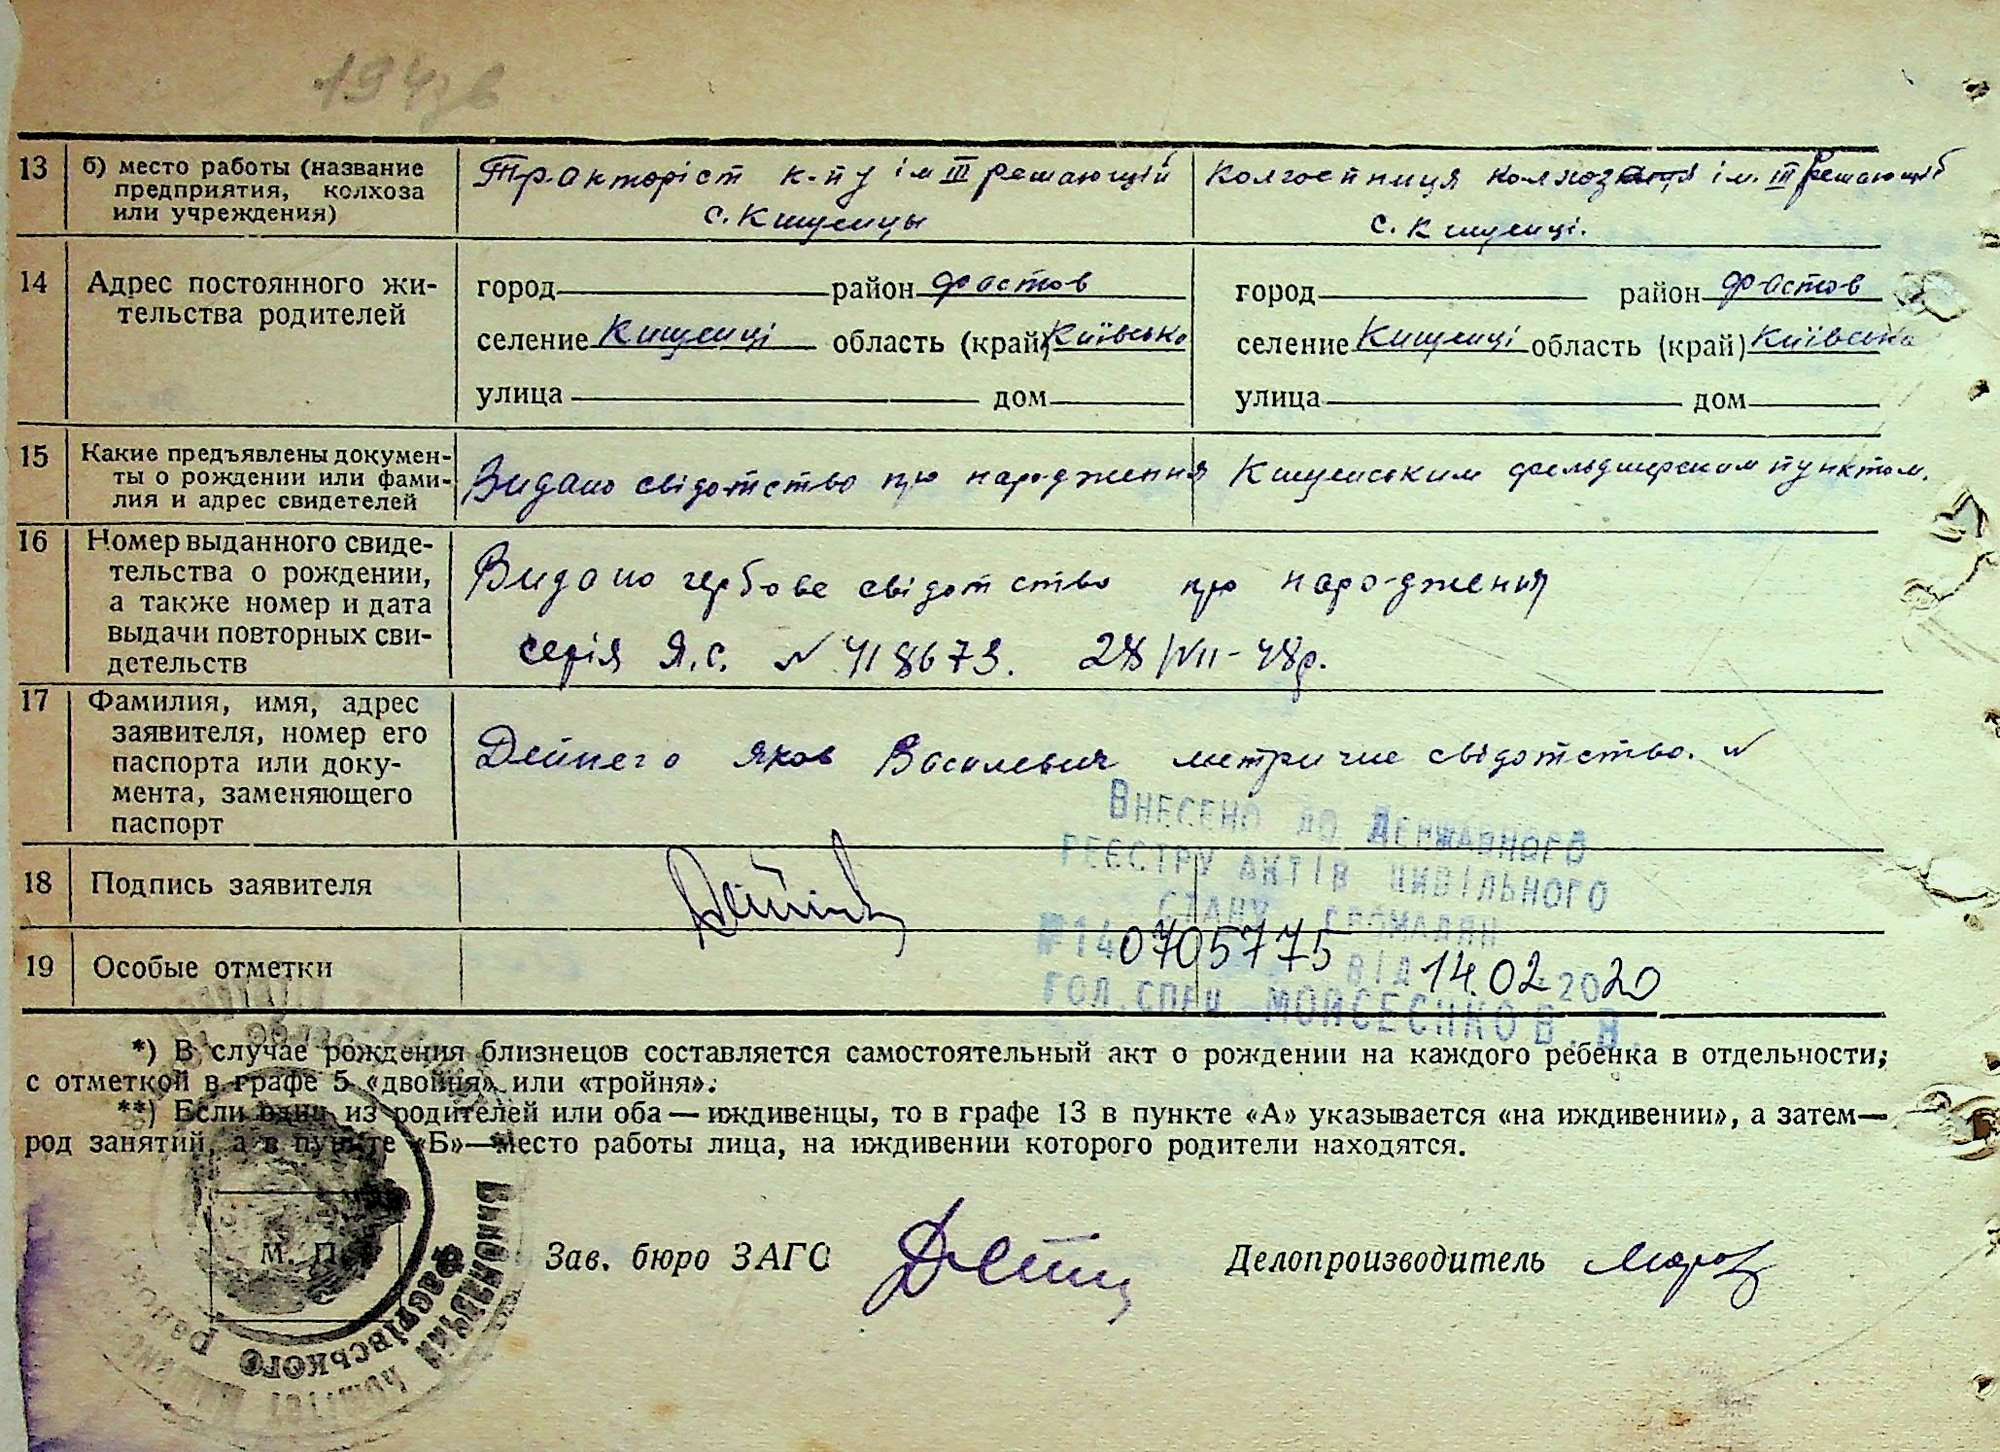 13 б) место работы (название предприятия, колхоза или учреждения)
Тракторіст к-пу ім III решающій
с. Кищинцы
Колгоспниця колхоз ім. III Решающій
с. Кищинці.
14 Адрес постоянного жительства родителей
город район Фастов
селение Кищинці область (край) Київська
улица дом
город район Фастов
селение Кищинці область (край) Київська
улица дом
15 Какие предъявлены документы о рождении или фамилия и адрес свидетелей
Видано свідотство про народження Кищинським фельдшерским пунктом.
16 Номер выданного свидетельства о рождении, а также номер и дата выдачи повторных свидетельств
Видано гербове свідотство про народження
серія Я.С. № 418673. 28/VII-48р.
17 Фамилия, имя, адрес заявителя, номер его паспорта или документа, заменяющего паспорт
Дейнего Яков Василевич метричне свідотство. №
Внесено до Державного
реєстру актів цивільного
стану громадян
№140705775 від 14.02.2020
гол.спец. Мойсеєнко В.В.
18 Подпись заявителя
19 Особые отметки
*) В случае рождения близнецов составляется самостоятельный акт о рождении на каждого ребенка в отдельности;
с отметкой в графе 5 «двойня» или «тройня».
**) Если один из родителей или оба — иждивенцы, то в графе 13 в пункте «А» указывается «на иждивении», а затем—
род занятий, а в пункте «Б»—место работы лица, на иждивении которого родители находятся.
М. П.
Зав. бюро ЗАГС
Делопроизводитель
Виконавчий комітет
Фастівського Район